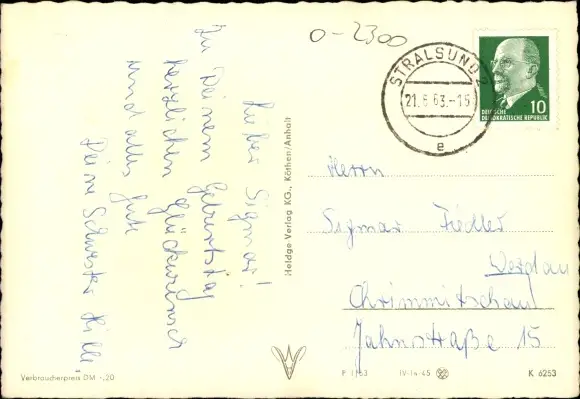 0-2300
STRALSUND 2
21.6.63.-15
e
DEUTSCHE
DEMOKRATISCHE REPUBLIK
10
Lieber Sigmar!
Zu Deinem Geburtstag
herzlichen Glückwunsch
und alles Gute
Deine Schwester Hille
Heldge Verlag KG., Köthen/Anhalt
Herrn
Sigmar Fiedler
Werdau
Chrimmitschau
Jahnstraße 15
Verbraucherpreis DM -,20
P 1/63
IV-14-45
K 6253